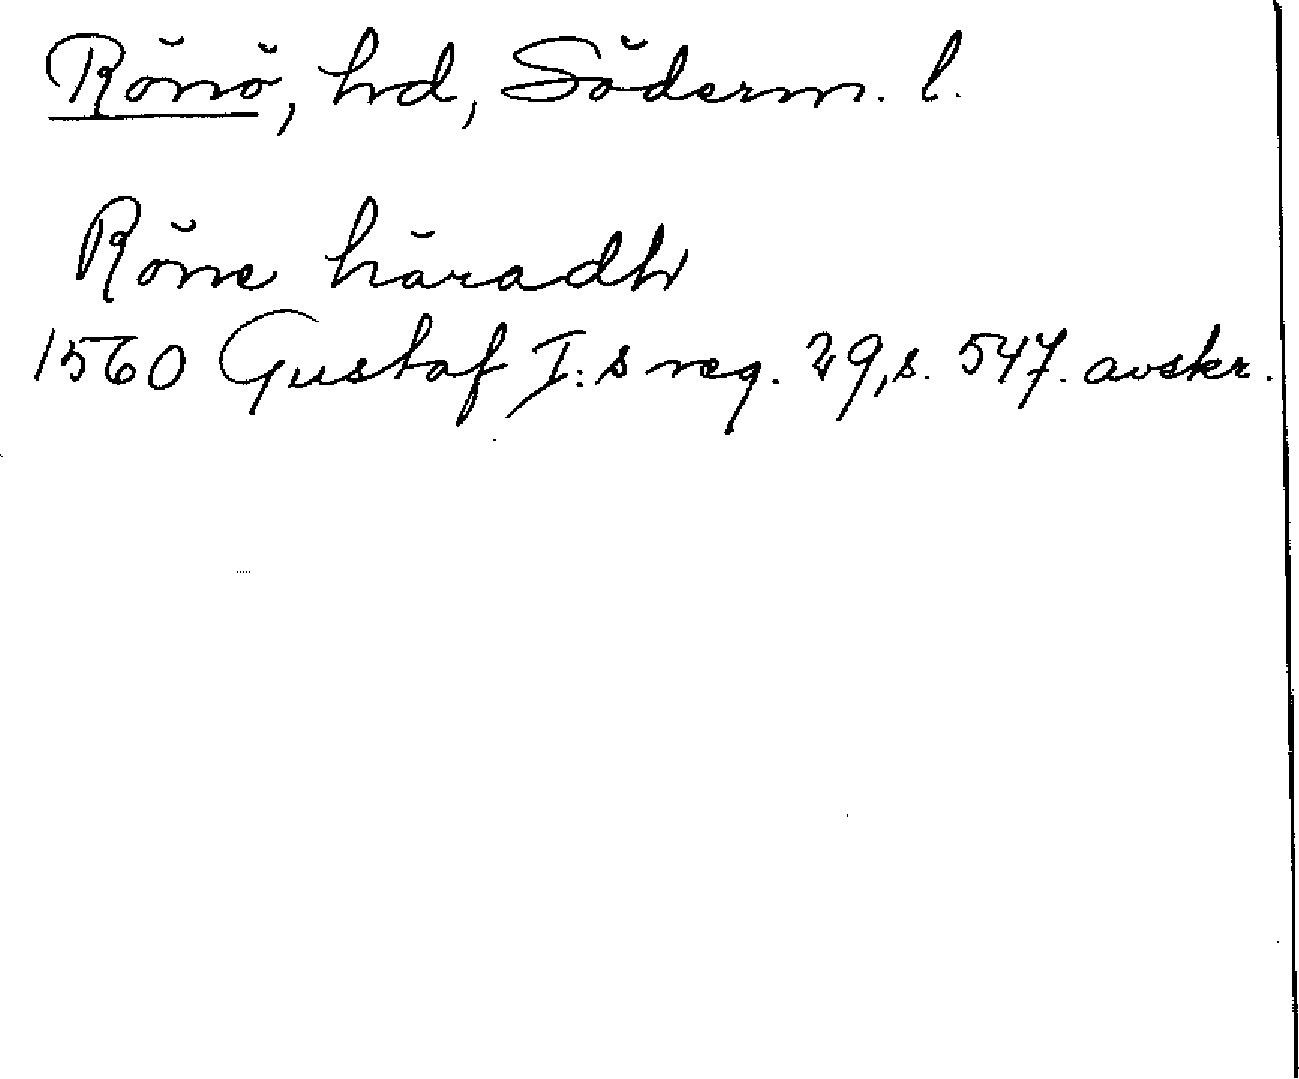 Rönö, hd, Söderm. l.
Röne häradh
1560 Gustaf I:s reg. 29, s. 547. avskr.